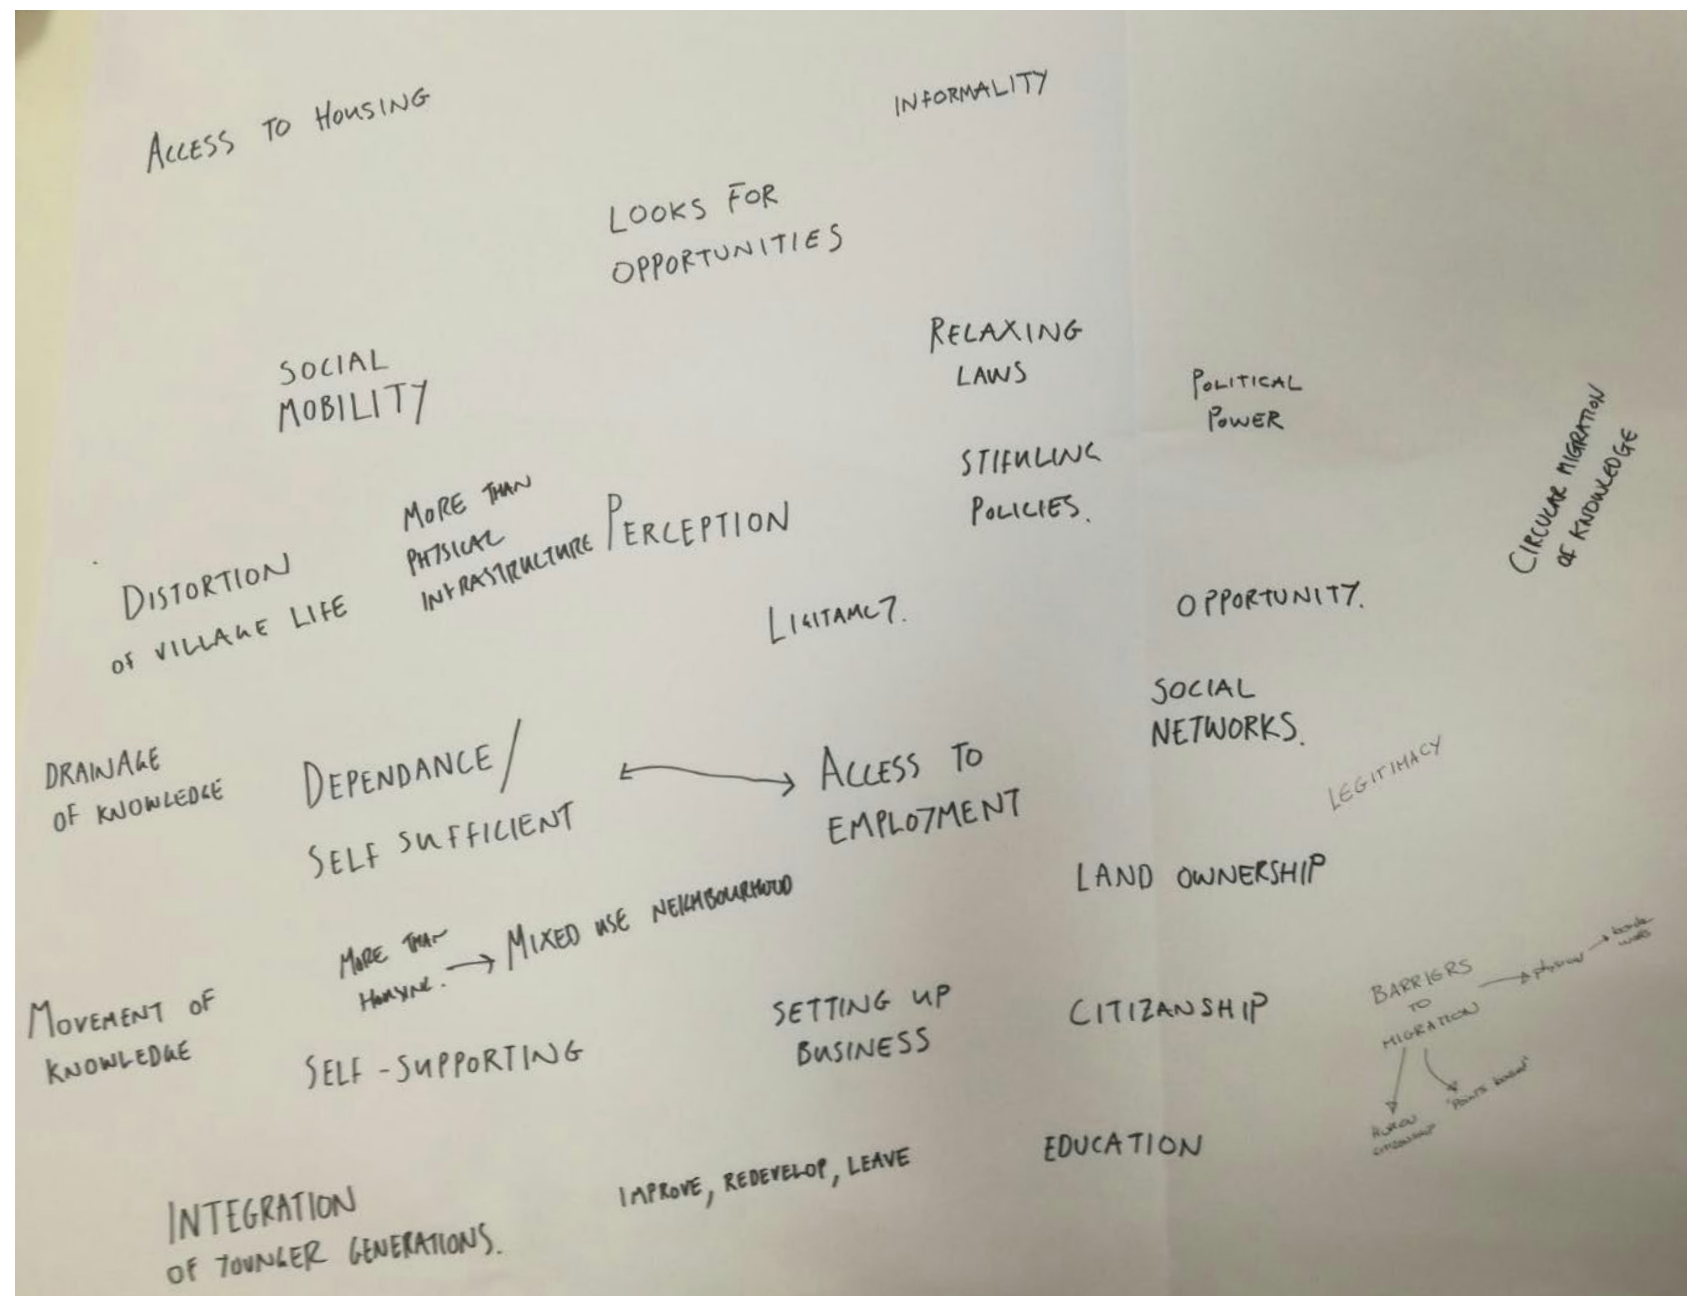 ACCESS TO HOUSING
INFORMALITY
LOOKS FOR
OPPORTUNITIES
SOCIAL
MOBILITY
RELAXING
LAWS
POLITICAL
POWER
STIFULING
POLICIES.
CIRCULAR MIGRATION
OF KNOWLEDGE
MORE THAN
PHYSICAL
INFRASTRUCTURE
PERCEPTION
DISTORTION
OF VILLAGE LIFE
LIGITAMCY.
OPPORTUNITY.
SOCIAL
NETWORKS.
DRAINAGE
OF KNOWLEDGE
DEPENDANCE/
SELF SUFFICIENT
ACCESS TO
EMPLOYMENT
LEGITIMACY
LAND OWNERSHIP
MORE THAN
HOUSING.
MIXED USE NEIGHBOURHOOD
MOVEMENT OF
KNOWLEDGE
SELF-SUPPORTING
SETTING UP
BUSINESS
CITIZANSHIP
BARRIERS
TO
MIGRATION
physical
"Points based"
citizenship
EDUCATION
IMPROVE, REDEVELOP, LEAVE
INTEGRATION
OF YOUNGER GENERATIONS.